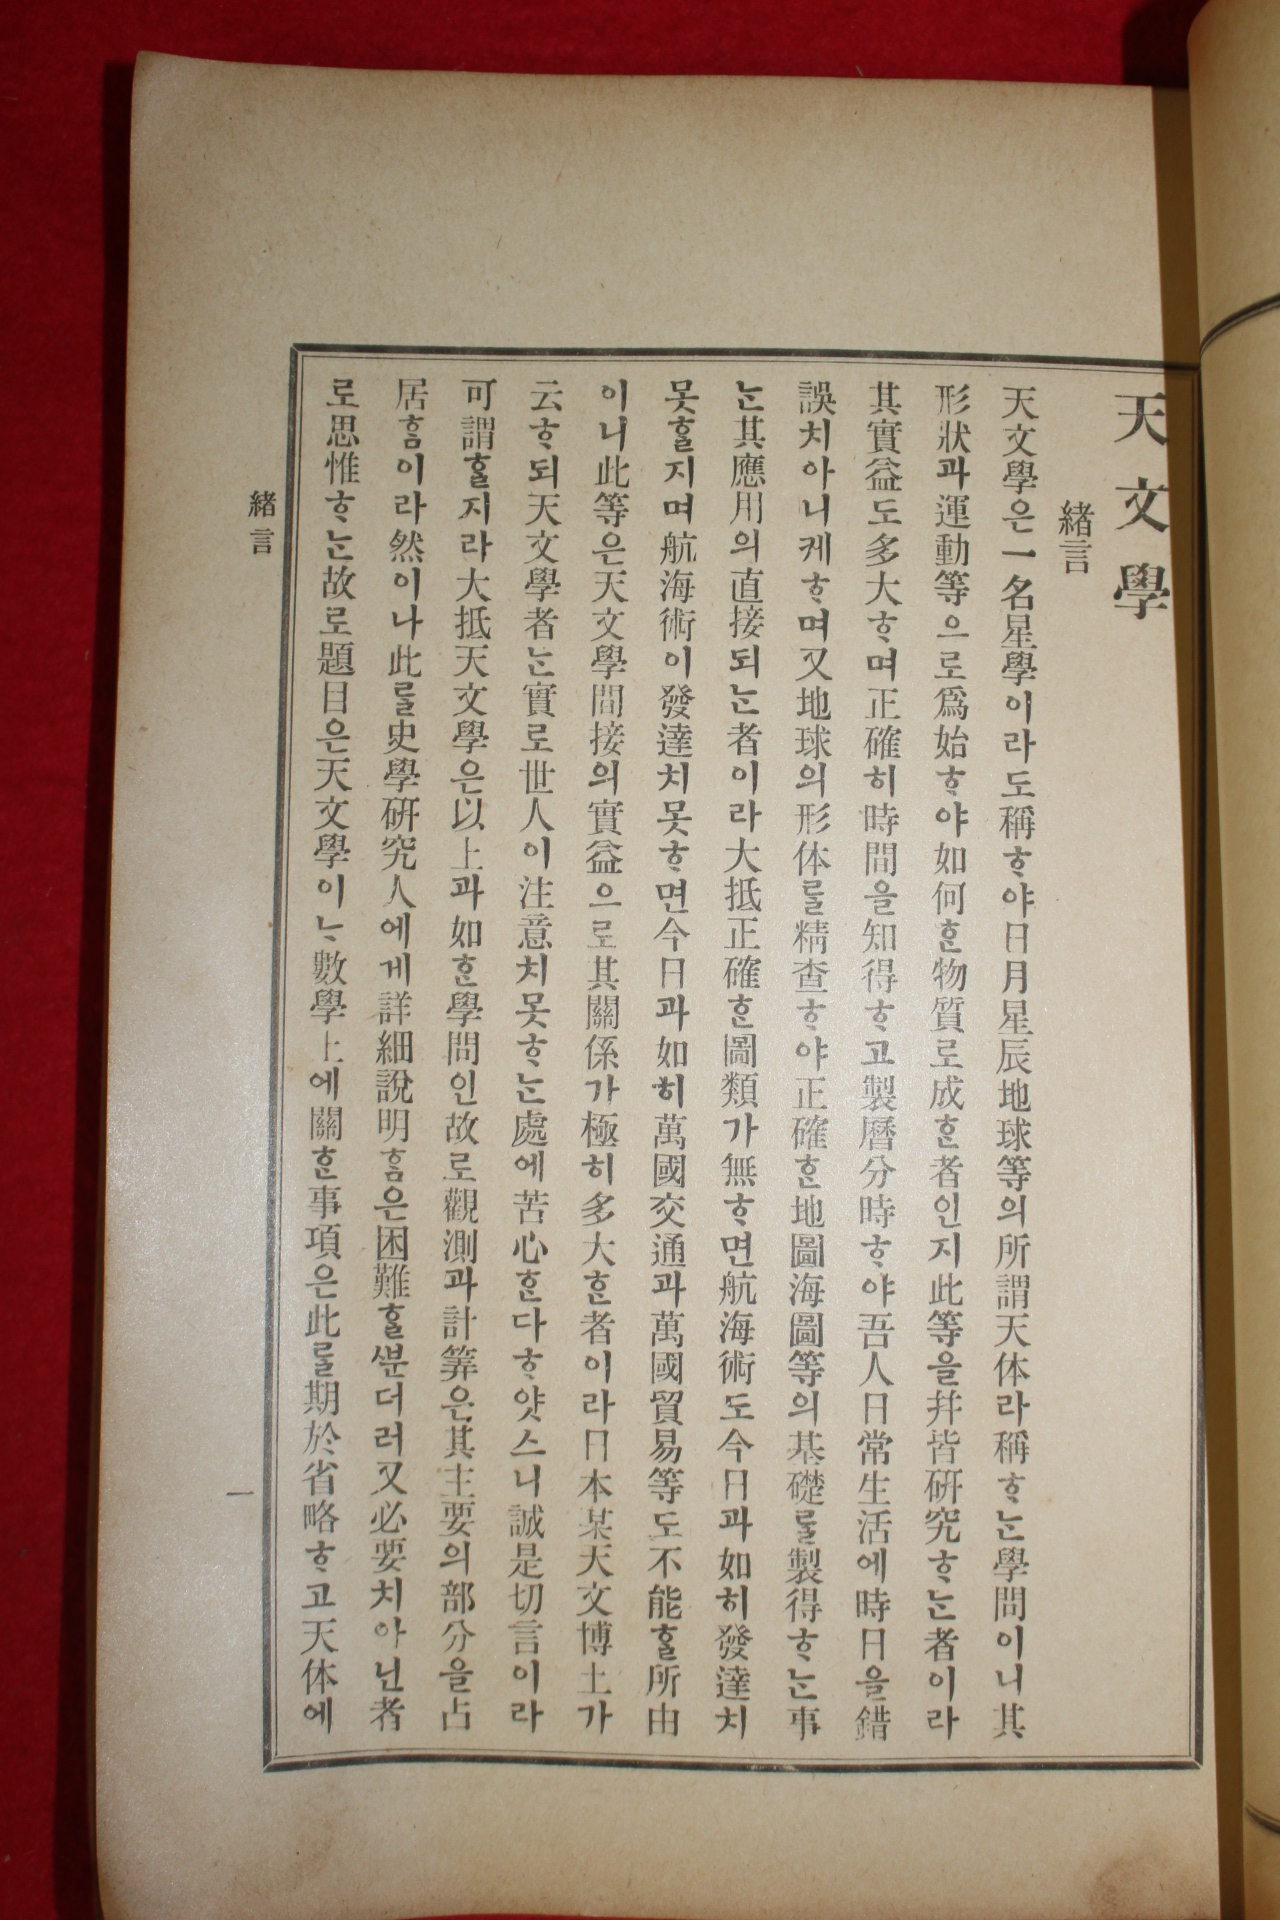 天文學
緖言
天文學은一名星學이라도稱ᄒᆞ야日月星辰地球等의所謂天体라稱ᄒᆞᄂᆞᆫ學問이니其
形狀과運動等으로爲始ᄒᆞ야如何ᄒᆞᆫ物質로成ᄒᆞᆫ者인지此等을幷皆硏究ᄒᆞᄂᆞᆫ者이라
其實益도多大ᄒᆞ며正確히時間을知得ᄒᆞ고製曆分時ᄒᆞ야吾人日常生活에時日을錯
誤치아니케ᄒᆞ며又地球의形体ᄅᆞᆯ精査ᄒᆞ야正確ᄒᆞᆫ地圖海圖等의基礎ᄅᆞᆯ製得ᄒᆞᄂᆞᆫ事
ᄂᆞᆫ其應用의直接되ᄂᆞᆫ者이라大抵正確ᄒᆞᆫ圖類가無ᄒᆞ면航海術도今日과如히發達치
못ᄒᆞᆯ지며航海術이發達치못ᄒᆞ면今日과如히萬國交通과萬國貿易等도不能ᄒᆞᆯ所由
이니此等은天文學間接의實益으로其關係가極히多大ᄒᆞᆫ者이라日本某天文博士가
云ᄒᆞ되天文學者ᄂᆞᆫ實로世人이注意치못ᄒᆞᄂᆞᆫ處에苦心ᄒᆞᆫ다ᄒᆞ얏스니誠是切言이라
可謂ᄒᆞᆯ지라大抵天文學은以上과如ᄒᆞᆫ學問인故로觀測과計筭은其主要의部分을占
居ᄒᆞᆷ이라然이나此ᄅᆞᆯ史學硏究人에게詳細說明ᄒᆞᆷ은困難ᄒᆞᆯᄲᅮᆫ더러又必要치아닌者
로思惟ᄒᆞᄂᆞᆫ故로題目은天文學이ᄂᆞ數學上에關ᄒᆞᆫ事項은此ᄅᆞᆯ期於省略ᄒᆞ고天体에
緖言
一